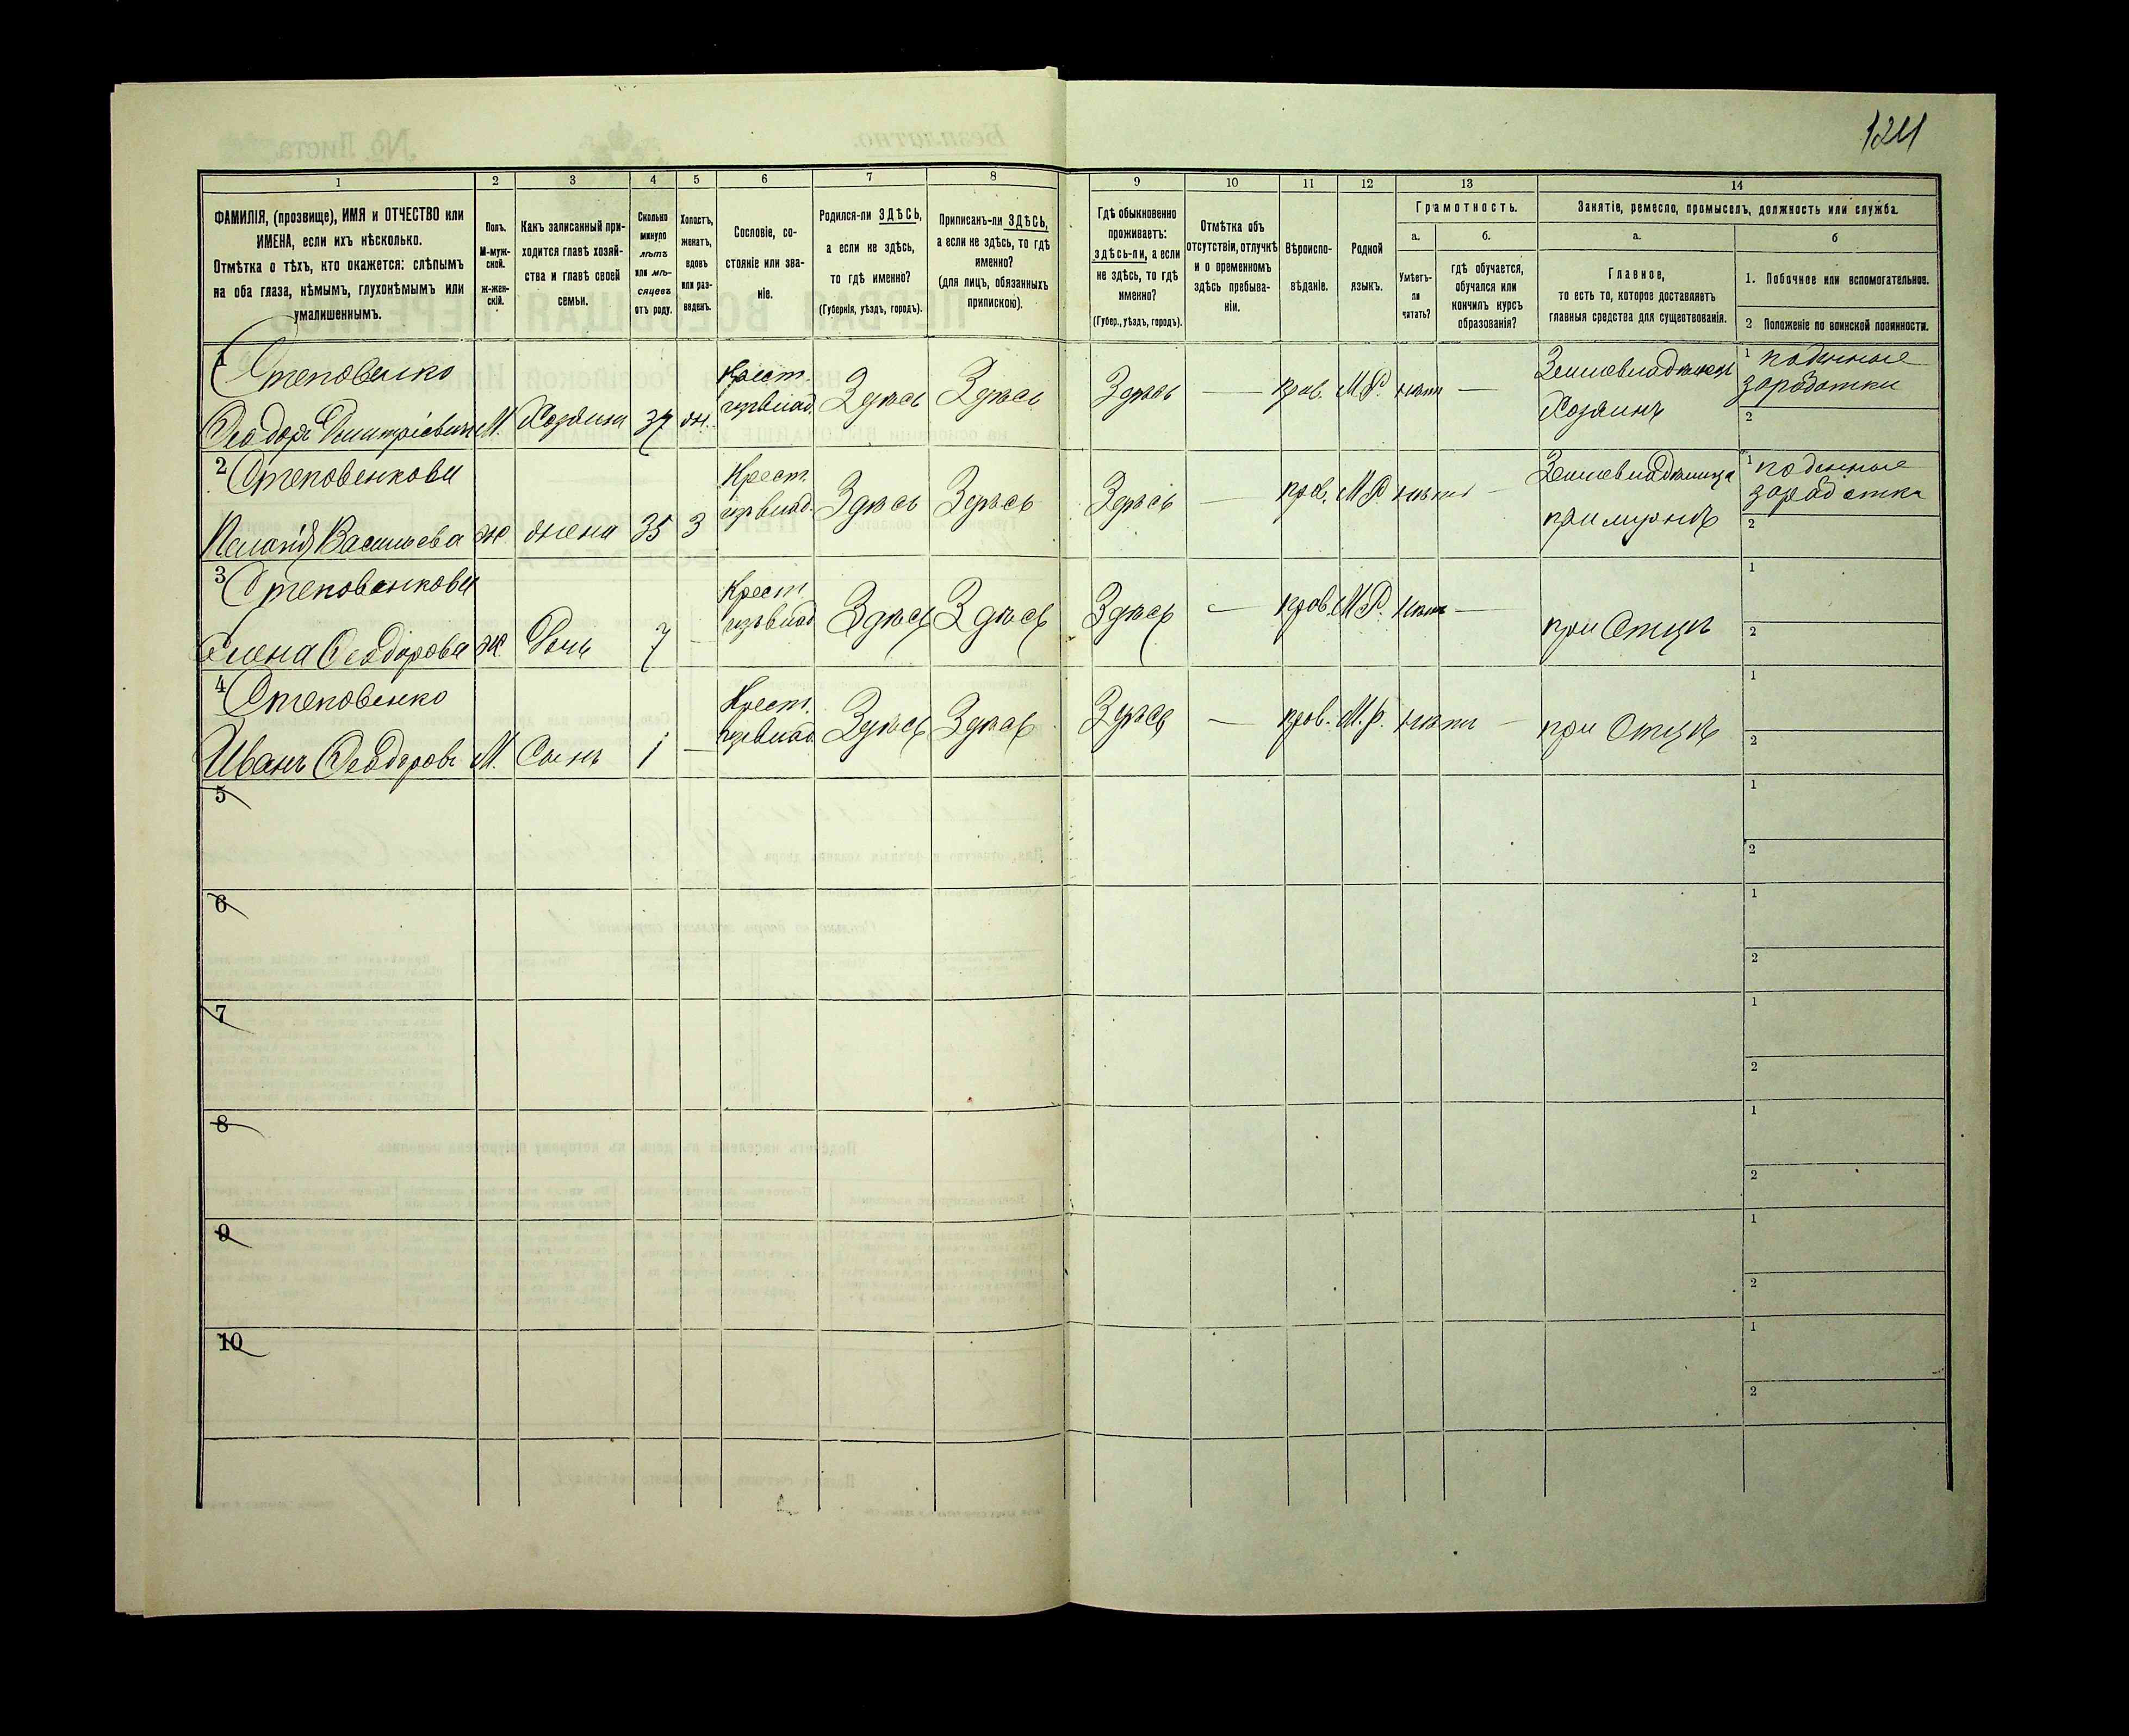 124
1 2 3 4 5 6 7 8 9 10 11 12 13 14
ФАМИЛІЯ, (прозвище), ИМЯ и ОТЧЕСТВО или
ИМЕНА, если ихъ нѣсколько.
Отмѣтка о тѣхъ, кто окажется: слѣпымъ
на оба глаза, нѣмымъ, глухонѣмымъ или
умалишеннымъ.
Полъ.
М-муж-
ской.
ж-жен-
скій.
Какъ записанный при-
ходится главѣ хозяй-
ства и главѣ своей
семьи.
Сколько
минуло
лѣтъ
или мѣ-
сяцевъ
отъ роду.
Холостъ,
женатъ,
вдовъ
или раз-
веденъ.
Сословіе, со-
стояніе или зва-
ніе.
Родился-ли ЗДѢСЬ,
а если не здѣсь,
то гдѣ именно?
(Губернія, уѣздъ, городъ).
Приписанъ-ли ЗДѢСЬ,
а если не здѣсь, то гдѣ
именно?
(для лицъ, обязанныхъ
припискою).
Гдѣ обыкновенно
проживаетъ:
здѣсь-ли, а если
не здѣсь, то гдѣ
именно?
(Губер., уѣздъ, городъ).
Отмѣтка объ
отсутствіи, отлучкѣ
и о временномъ
здѣсь пребыва-
ніи.
Вѣроиспо-
вѣданіе.
Родной
языкъ.
Грамотность.
а.
Умѣетъ-
ли
читать?
б.
гдѣ обучается,
обучался или
кончилъ курсъ
образованія?
Занятіе, ремесло, промыселъ, должность или служба.
а.
Главное,
то есть то, которое доставляетъ
главныя средства для существованія.
б
1. Побочное или вспомогательное.
2 Положеніе по воинской повинности.
1 Степовенко Крест. Здѣсь Здѣсь Здѣсь — прав. М.Р. нѣтъ — Землевладѣлец 1 поденные
Ѳеодоръ Дмитріевичъ М. Хозяинъ 37 ж. изъ влад. Хозяинъ заработки
2
2 Степовенкова Крест. Здѣсь Здѣсь Здѣсь — прав. М.Р. нѣтъ — Землевладѣлица 1 поденные
Пелагія Васильева ж жена 35 З изъ влад. при мужѣ заработки
2
3 Степовенкова Крест. Здѣсь Здѣсь Здѣсь — прав. М.Р. нѣтъ — 1
Елена Ѳеодорова ж. Дочь 7 — изъ влад. при Отцѣ 2
4 Степовенко Крест. Здѣсь Здѣсь Здѣсь — прав. М.Р. нѣтъ — 1
Иванъ Ѳеодоровъ М. Сынъ 1 — изъ влад. при Отцѣ 2
5 1
2
6 1
2
7 1
2
8 1
2
9 1
2
10 1
2